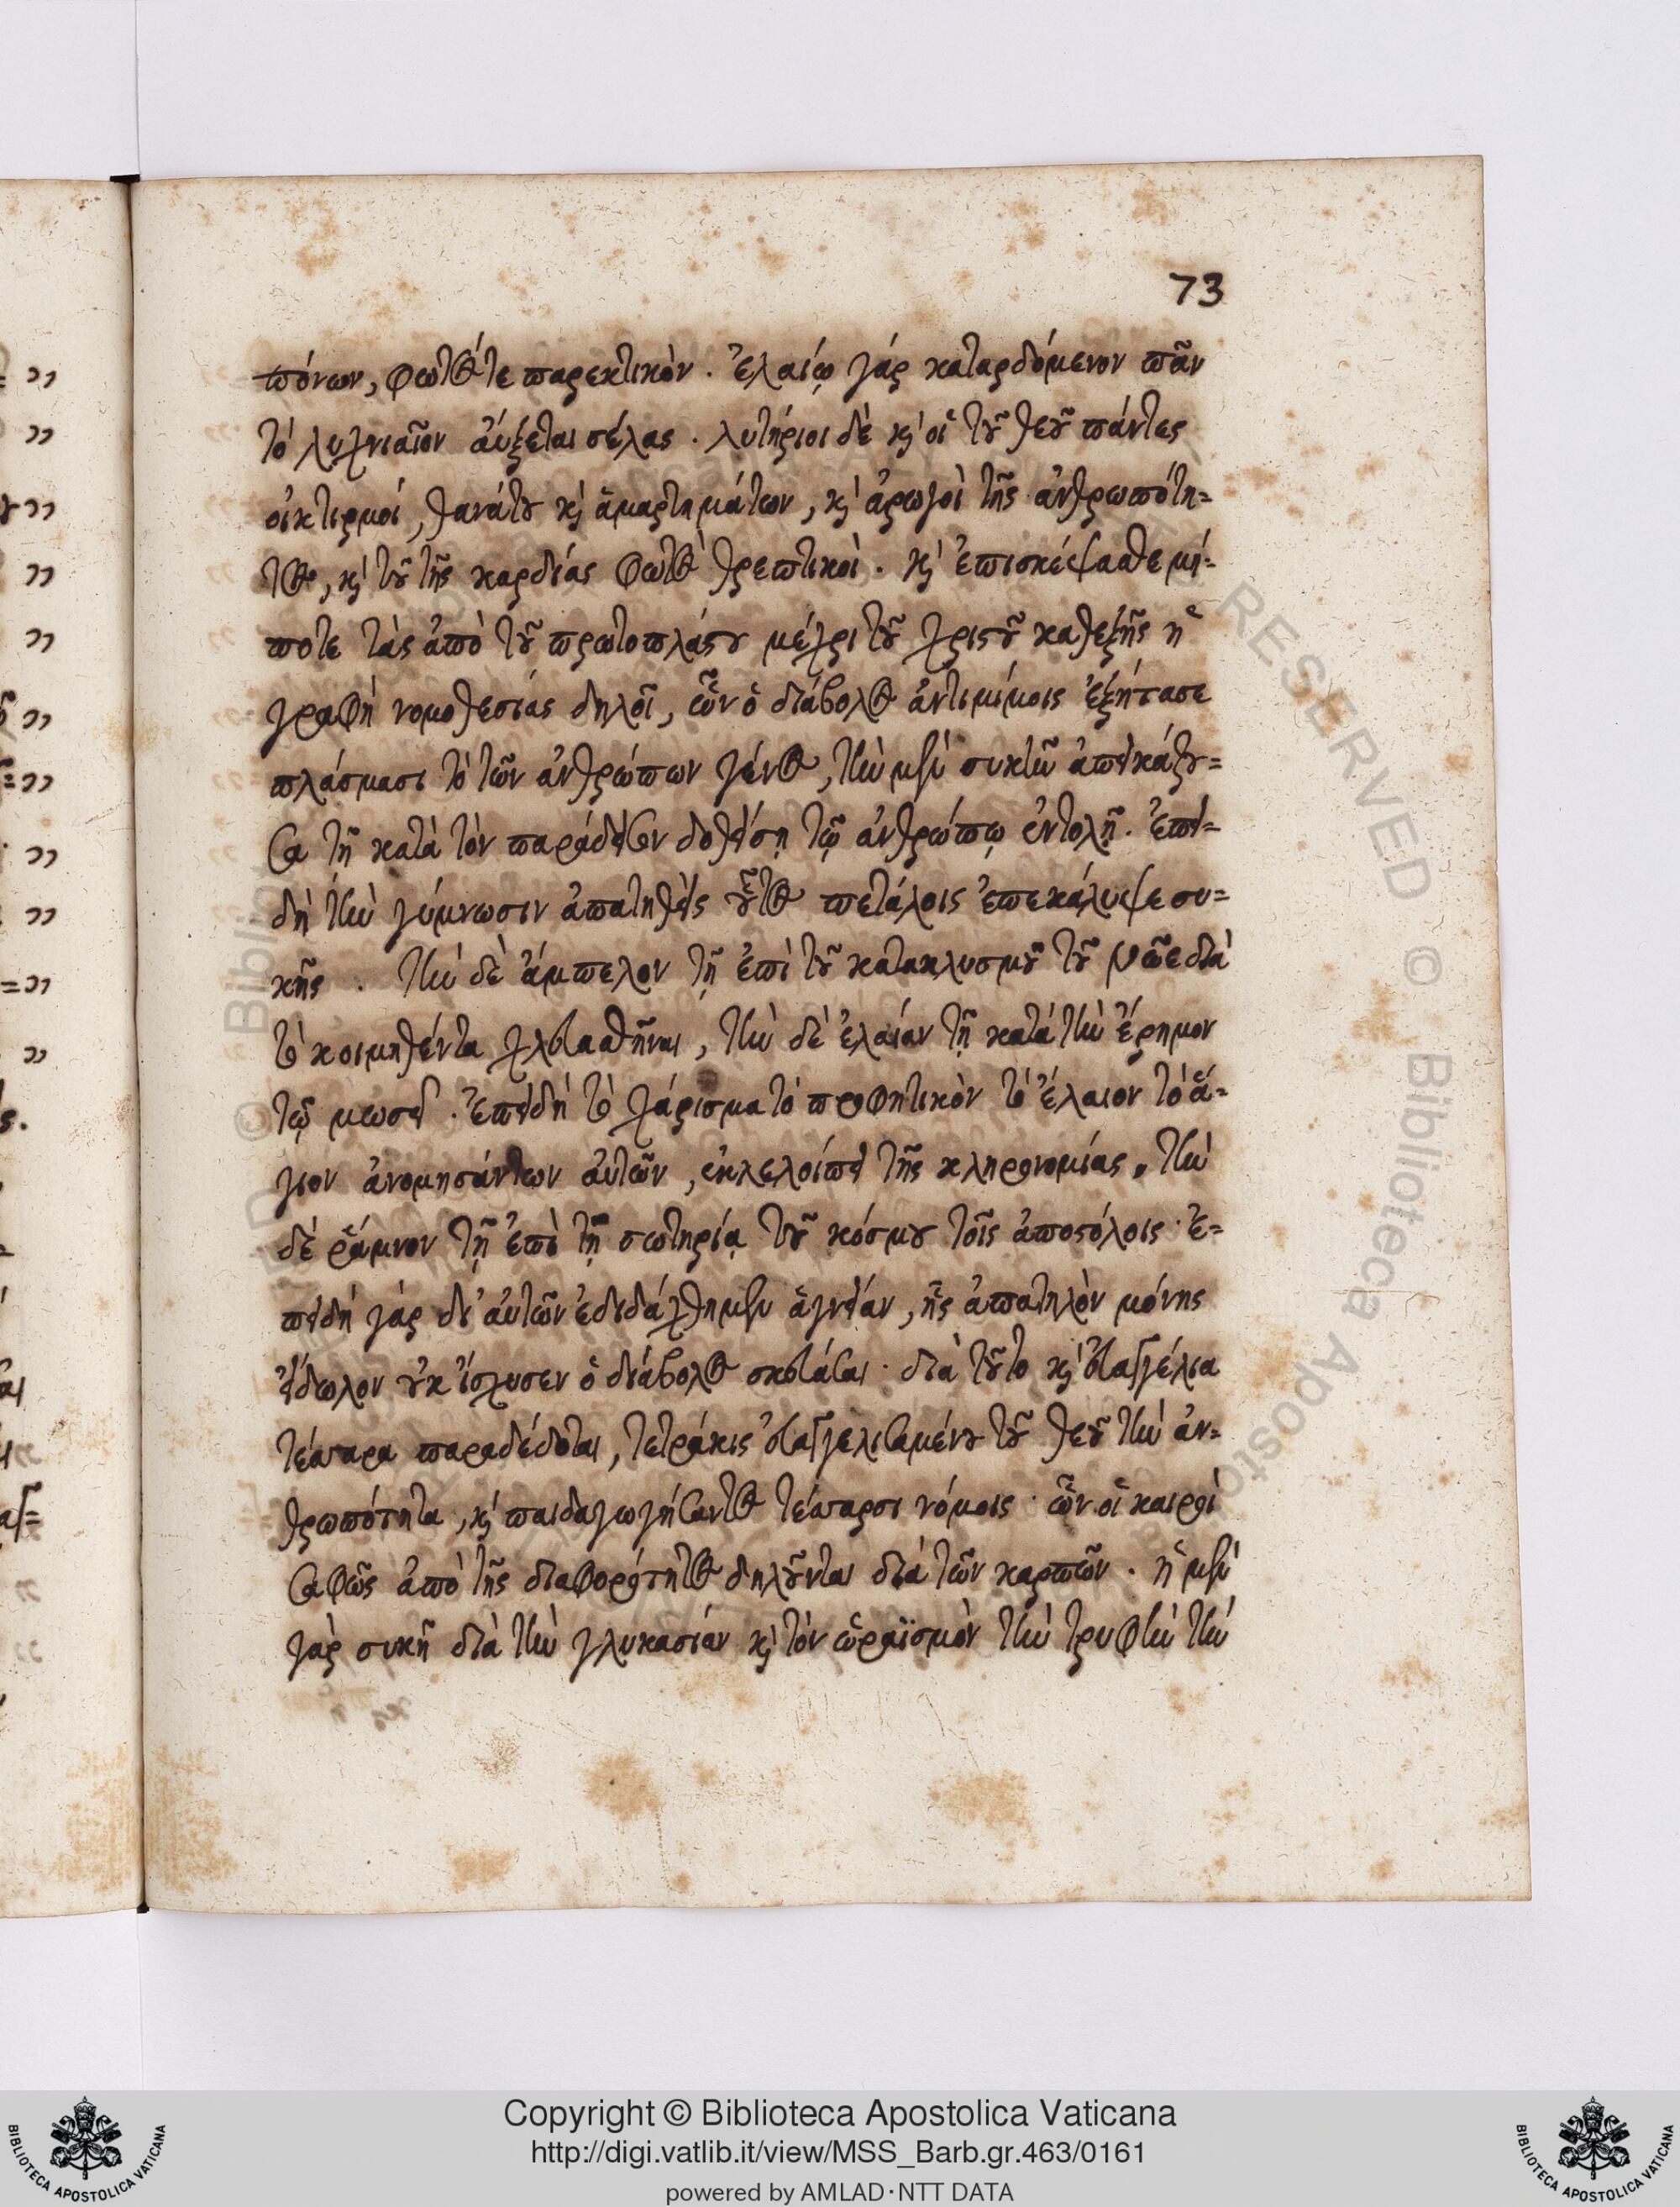 73
πόνων, φωτός τε παρεκτικόν. ἐλαίῳ γάρ καταρδόμενον πᾶν
τό λυχνιαῖον ἀύξεται σέλας. λυτήριοι δέ κ̀ οἱ τοῦ θεοῦ πάντες
οἰκτιρμοί, θανάτου κ̀ ἁμαρτημάτων, κ̀ ἀρωγοὶ τῆς ἀνθρωπότη=
τος, κ̀ τοῦ τῆς καρδίας φωτὸς θρεπτικοὶ. κ̀ ἐπισκέψασθε μή=
ποτε τὰς ἀπὸ τοῦ πρωτοπλάστου μέχρι τοῦ χριστοῦ καθεξῆς ἡ
γραφή νομοθεσίας δηλοῖ, ὧν ὁ διάβολος ἀντιμίμοις ἐξήπασε
πλάσμασι τὸ τῶν ἀνθρώπων γένος, τὴν μὲν συκῆν ἀπεικάζου=
σα τῇ κατὰ τὸν παράδεισον δοθείσῃ τῷ ἀνθρώπῳ ἐντολῇ. ἐπει=
δὴ τὴν γύμνωσιν ἀπατηθεὶς οὗτος πετάλοις ἐπεκάλυψε συ=
κῆς. τὴν δὲ ἄμπελον τῇ ἐπὶ τοῦ κατακλυσμοῦ τοῦ Νῶε διὰ
τὸ κοιμηθέντα χλευασθῆναι, τὴν δὲ ἐλαίαν τῇ κατά τὴν ἔρημον
τῷ μωσεῖ. ἐπειδή τὸ χάρισμα τὸ προφητικὸν τὸ ἔλαιον τὸ ἅ=
γιον ἀνομησάντων ἀυτῶν, ἐκλελοίπει τῆς κληρονομίας. τὴν
δὲ ῥάμνον τῇ ἐπὶ τῇ σωτηρίᾳ τοῦ κόσμου τοῖς ἀποστόλοις. ἐ=
πειδή γάρ δι' ἀυτῶν ἐδιδάχθημεν ἁγνείαν, ἧς ἀπατηλὸν μόνης
εἴδωλον οὐκ ἴσχυσεν ὁ διάβολος σκευάσαι. διὰ τοῦτο κ̀ ἐυαγγέλια
τέσσαρα παραδέδοται, τετράκις ἐυαγγελισαμένου τοῦ θεοῦ τὴν ἀν=
θρωπότητα, κ̀ παιδαγωγήσαντος τέσσαρσι νόμοις. ὧν οἱ καιροὶ
σαφῶς ἀπὸ τῆς διαφορότητος δηλοῦνται διὰ τῶν καρπῶν. ἡ μὲν
γὰρ συκῆ διὰ τὴν γλυκασίαν κ̀ τὸν ὡραϊσμὸν τὴν τρυφὴν τὴν
Copyright © Biblioteca Apostolica Vaticana
http://digi.vatlib.it/view/MSS_Barb.gr.463/0161
powered by AMLAD·NTT DATA
BIBLIOTECA APOSTOLICA VATICANA
BIBLIOTECA APOSTOLICA VATICANA